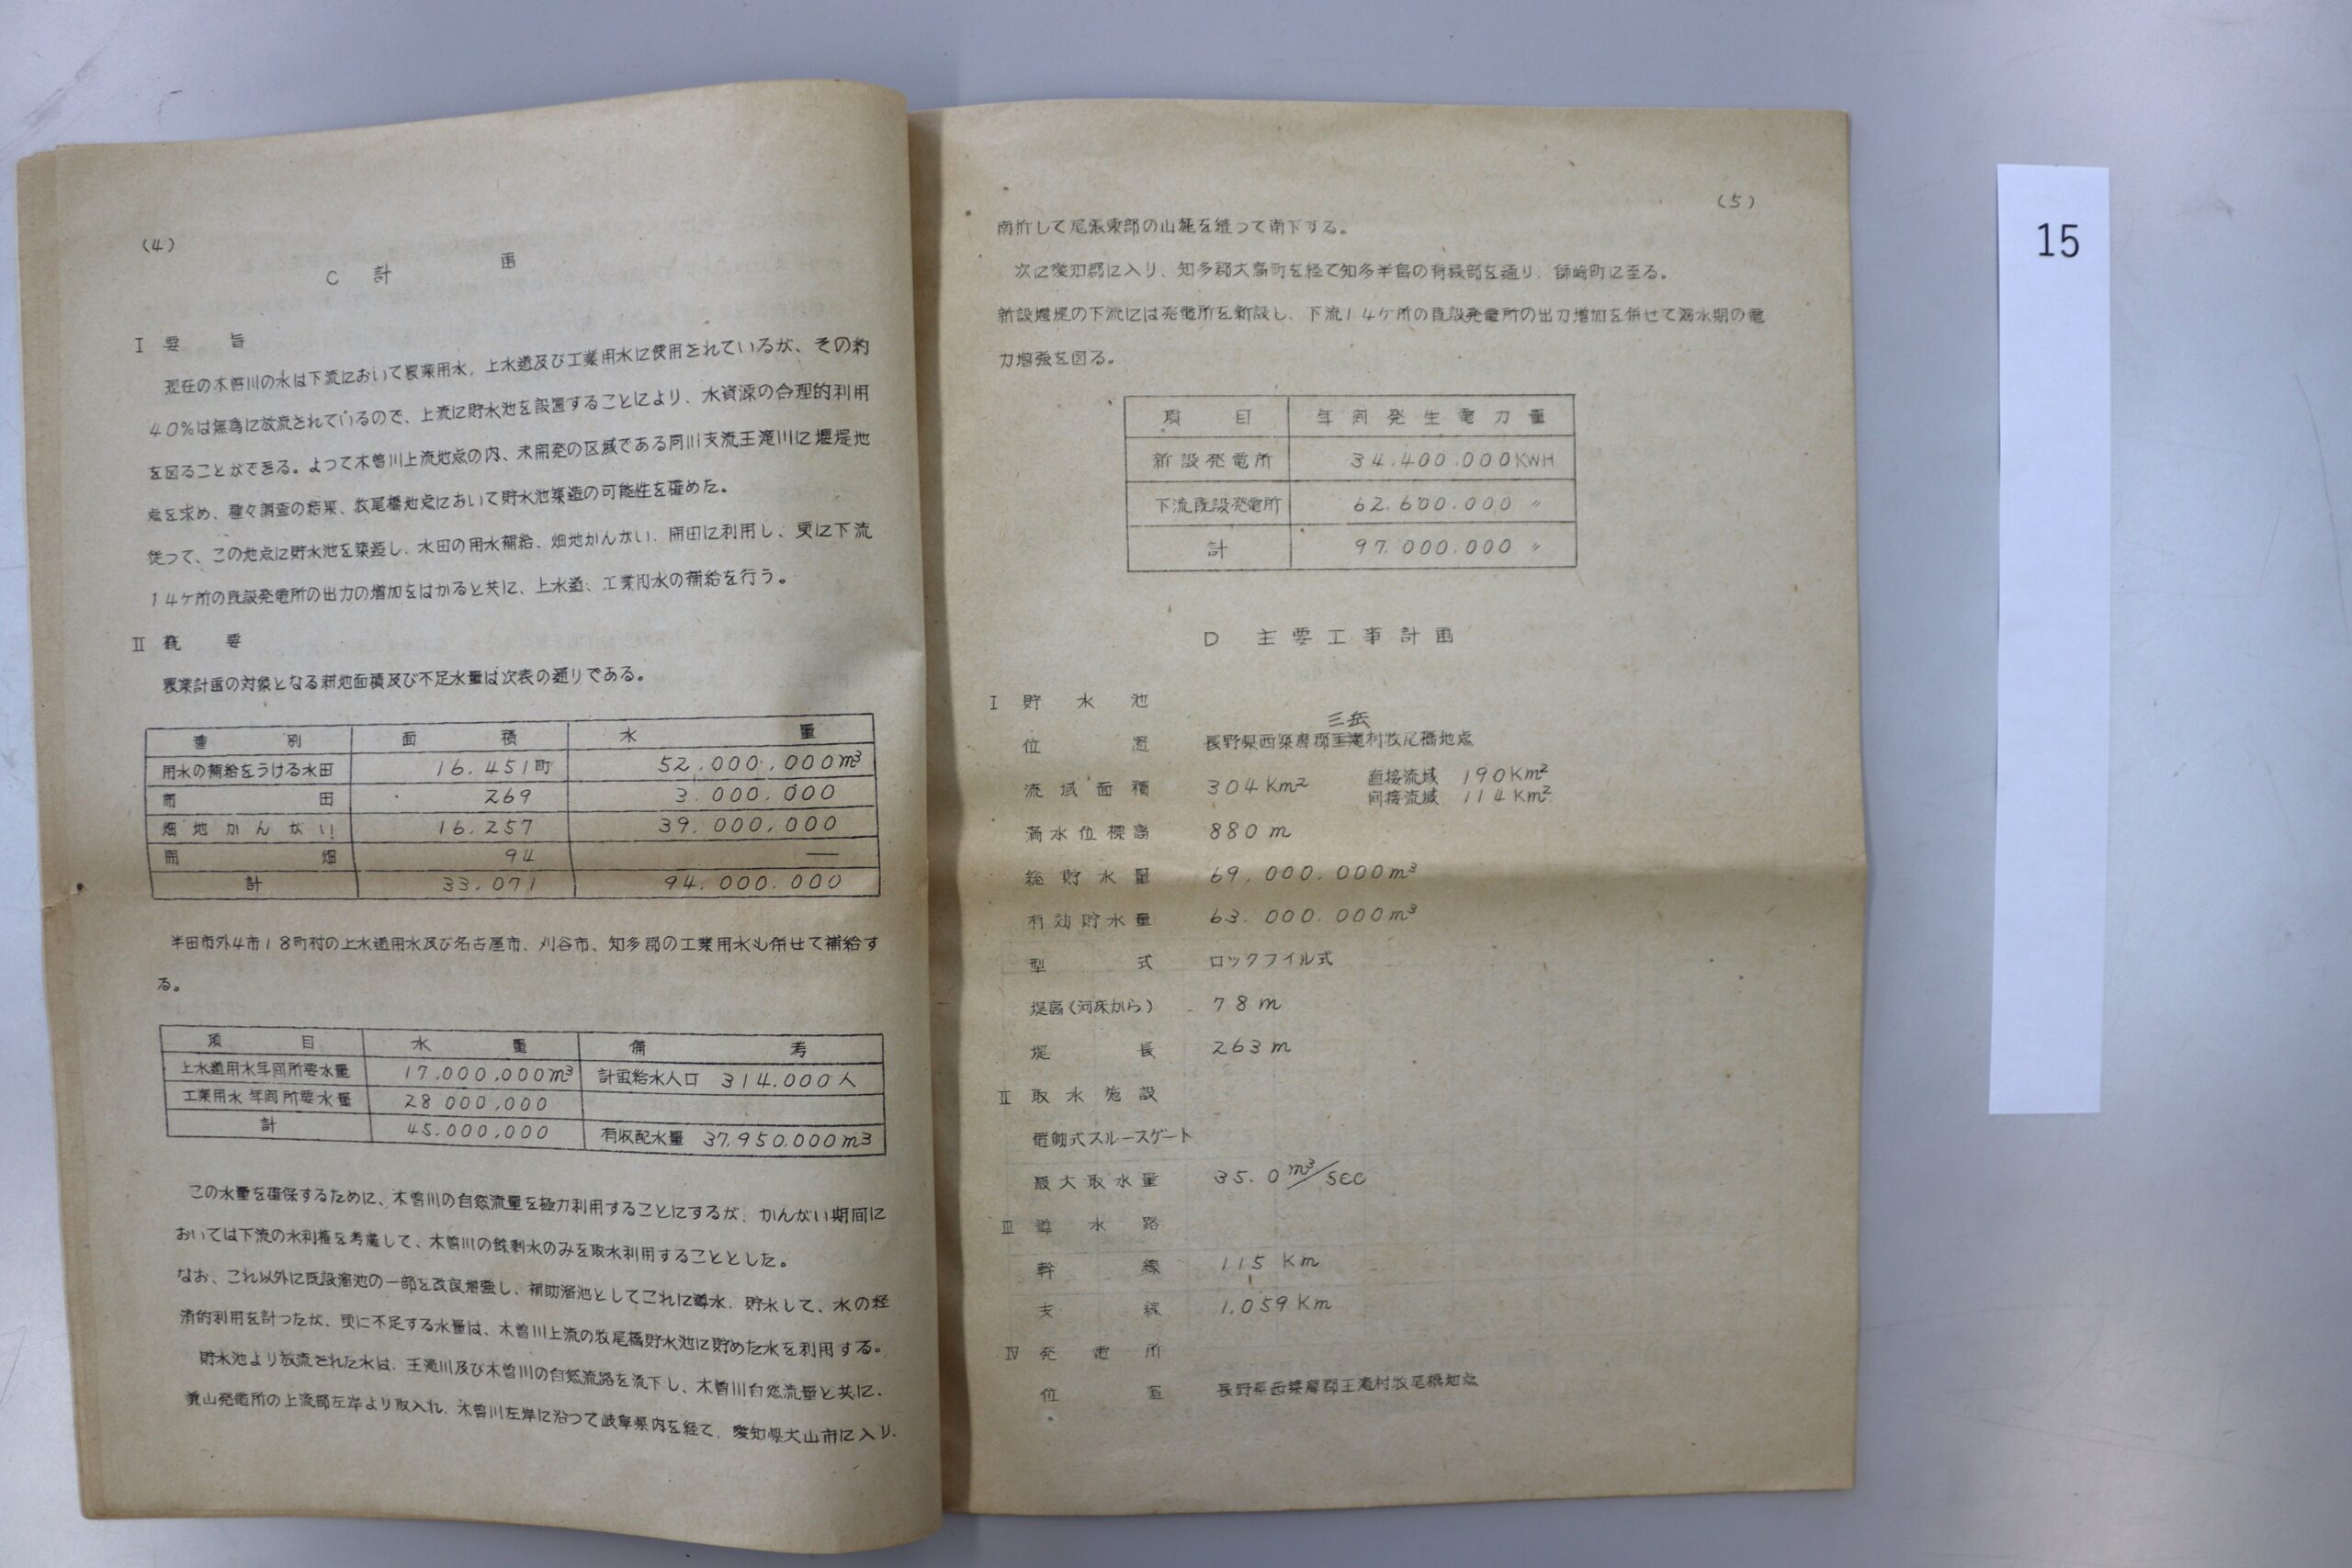 (4)
C 計 画
I 要 旨
現在の木曽川の水は下流において農業用水，上水道及び工業用水に使用されているが、その約
40%は無為に放流されているので、上流に貯水池を設置することにより、水資源の合理的利用
を図ることができる。よつて木曽川上流地点の内、未開発の区域である同川支流王滝川に堰堤地
点を求め、種々調査の結果、牧尾橋地点において貯水池築造の可能性を確めた。
従つて、この地点に貯水池を築造し、水田の用水補給、畑地かんがい、開田に利用し、更に下流
14ケ所の既設発電所の出力の増加をはかると共に、上水道、工業用水の補給を行う。
II 概 要
農業計画の対象となる耕地面積及び不足水量は次表の通りである。
種 別 面 積 水 量
用水の補給をうける水田 16.451町 52.000.000m³
開 田 269 3.000.000
畑地かんがい 16.257 39.000.000
開 畑 94 —
計 33.071 94.000.000
半田市外4市18町村の上水道用水及び名古屋市、刈谷市、知多郡の工業用水も併せて補給す
る。
項 目 水 量 備 考
上水道用水年間所要水量 17,000,000m³ 計画給水人口 314,000人
工業用水年間所要水量 28 000,000
計 45,000,000 有収配水量 37,950,000m3
この水量を確保するために、木曽川の自然流量を極力利用することにするが、かんがい期間に
おいては下流の水利権を考慮して、木曽川の餘剰水のみを取水利用することとした。
なお、これ以外に既設溜池の一部を改良増強し、補助溜池としてこれに導水、貯水して、水の経
済的利用を計つたが、更に不足する水量は、木曽川上流の牧尾橋貯水池に貯めた水を利用する。
貯水池より放流された水は、王滝川及び木曽川の自然流路を流下し、木曽川自然流量と共に、
兼山発電所の上流部左岸より取入れ、木曽川左岸に沿つて岐阜県内を経て、愛知県犬山市に入り、
(5)
南折して尾張東部の山麓を縫って南下する。
次に愛知郡に入り、知多郡大高町を経て知多半島の脊稜部を通り、師崎町に至る。
新設堰堤の下流には発電所を新設し、下流14ケ所の既設発電所の出力増加を併せて渇水期の電
力増強を図る。
項 目 年間発生電力量
新設発電所 34.400.000KWH
下流既設発電所 62.600.000 〃
計 97.000.000 〃
D 主要工事計画
I 貯 水 池
三岳
位 置 長野県西筑摩郡王滝村牧尾橋地点
流域面積 304Km² 直接流域 190Km²
間接流域 114Km²
満水位標高 880m
総貯水量 69.000.000m³
有効貯水量 63.000.000m³
型 式 ロックフイル式
堤高(河床から) 78m
堤 長 263m
II 取水施設
電動式スルースゲート
最大取水量 35.0m³/sec
III 導 水 路
幹 線 115Km
支 線 1.059Km
IV 発 電 所
位 置 長野県西筑摩郡王滝村牧尾橋地点
15